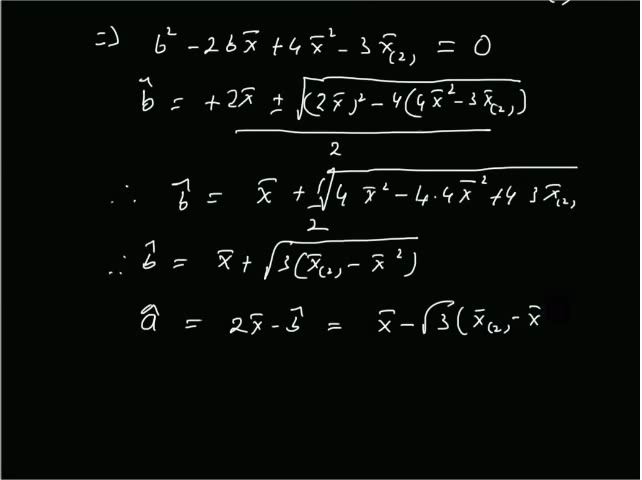 ⇒ b² - 2bx̄ + 4x̄² - 3x̄₍₂₎ = 0
b̂ = +2x̄ ± √((2x̄)² - 4(4x̄² - 3x̄₍₂₎)) / 2
∴ b̂ = x̄ + 1/2 √(4x̄² - 4·4x̄² + 4 3x̄₍₂₎
∴ b̂ = x̄ + √(3(x̄₍₂₎ - x̄²))
â = 2x̄ - b̂ = x̄ - √3(x̄₍₂₎ - x̄